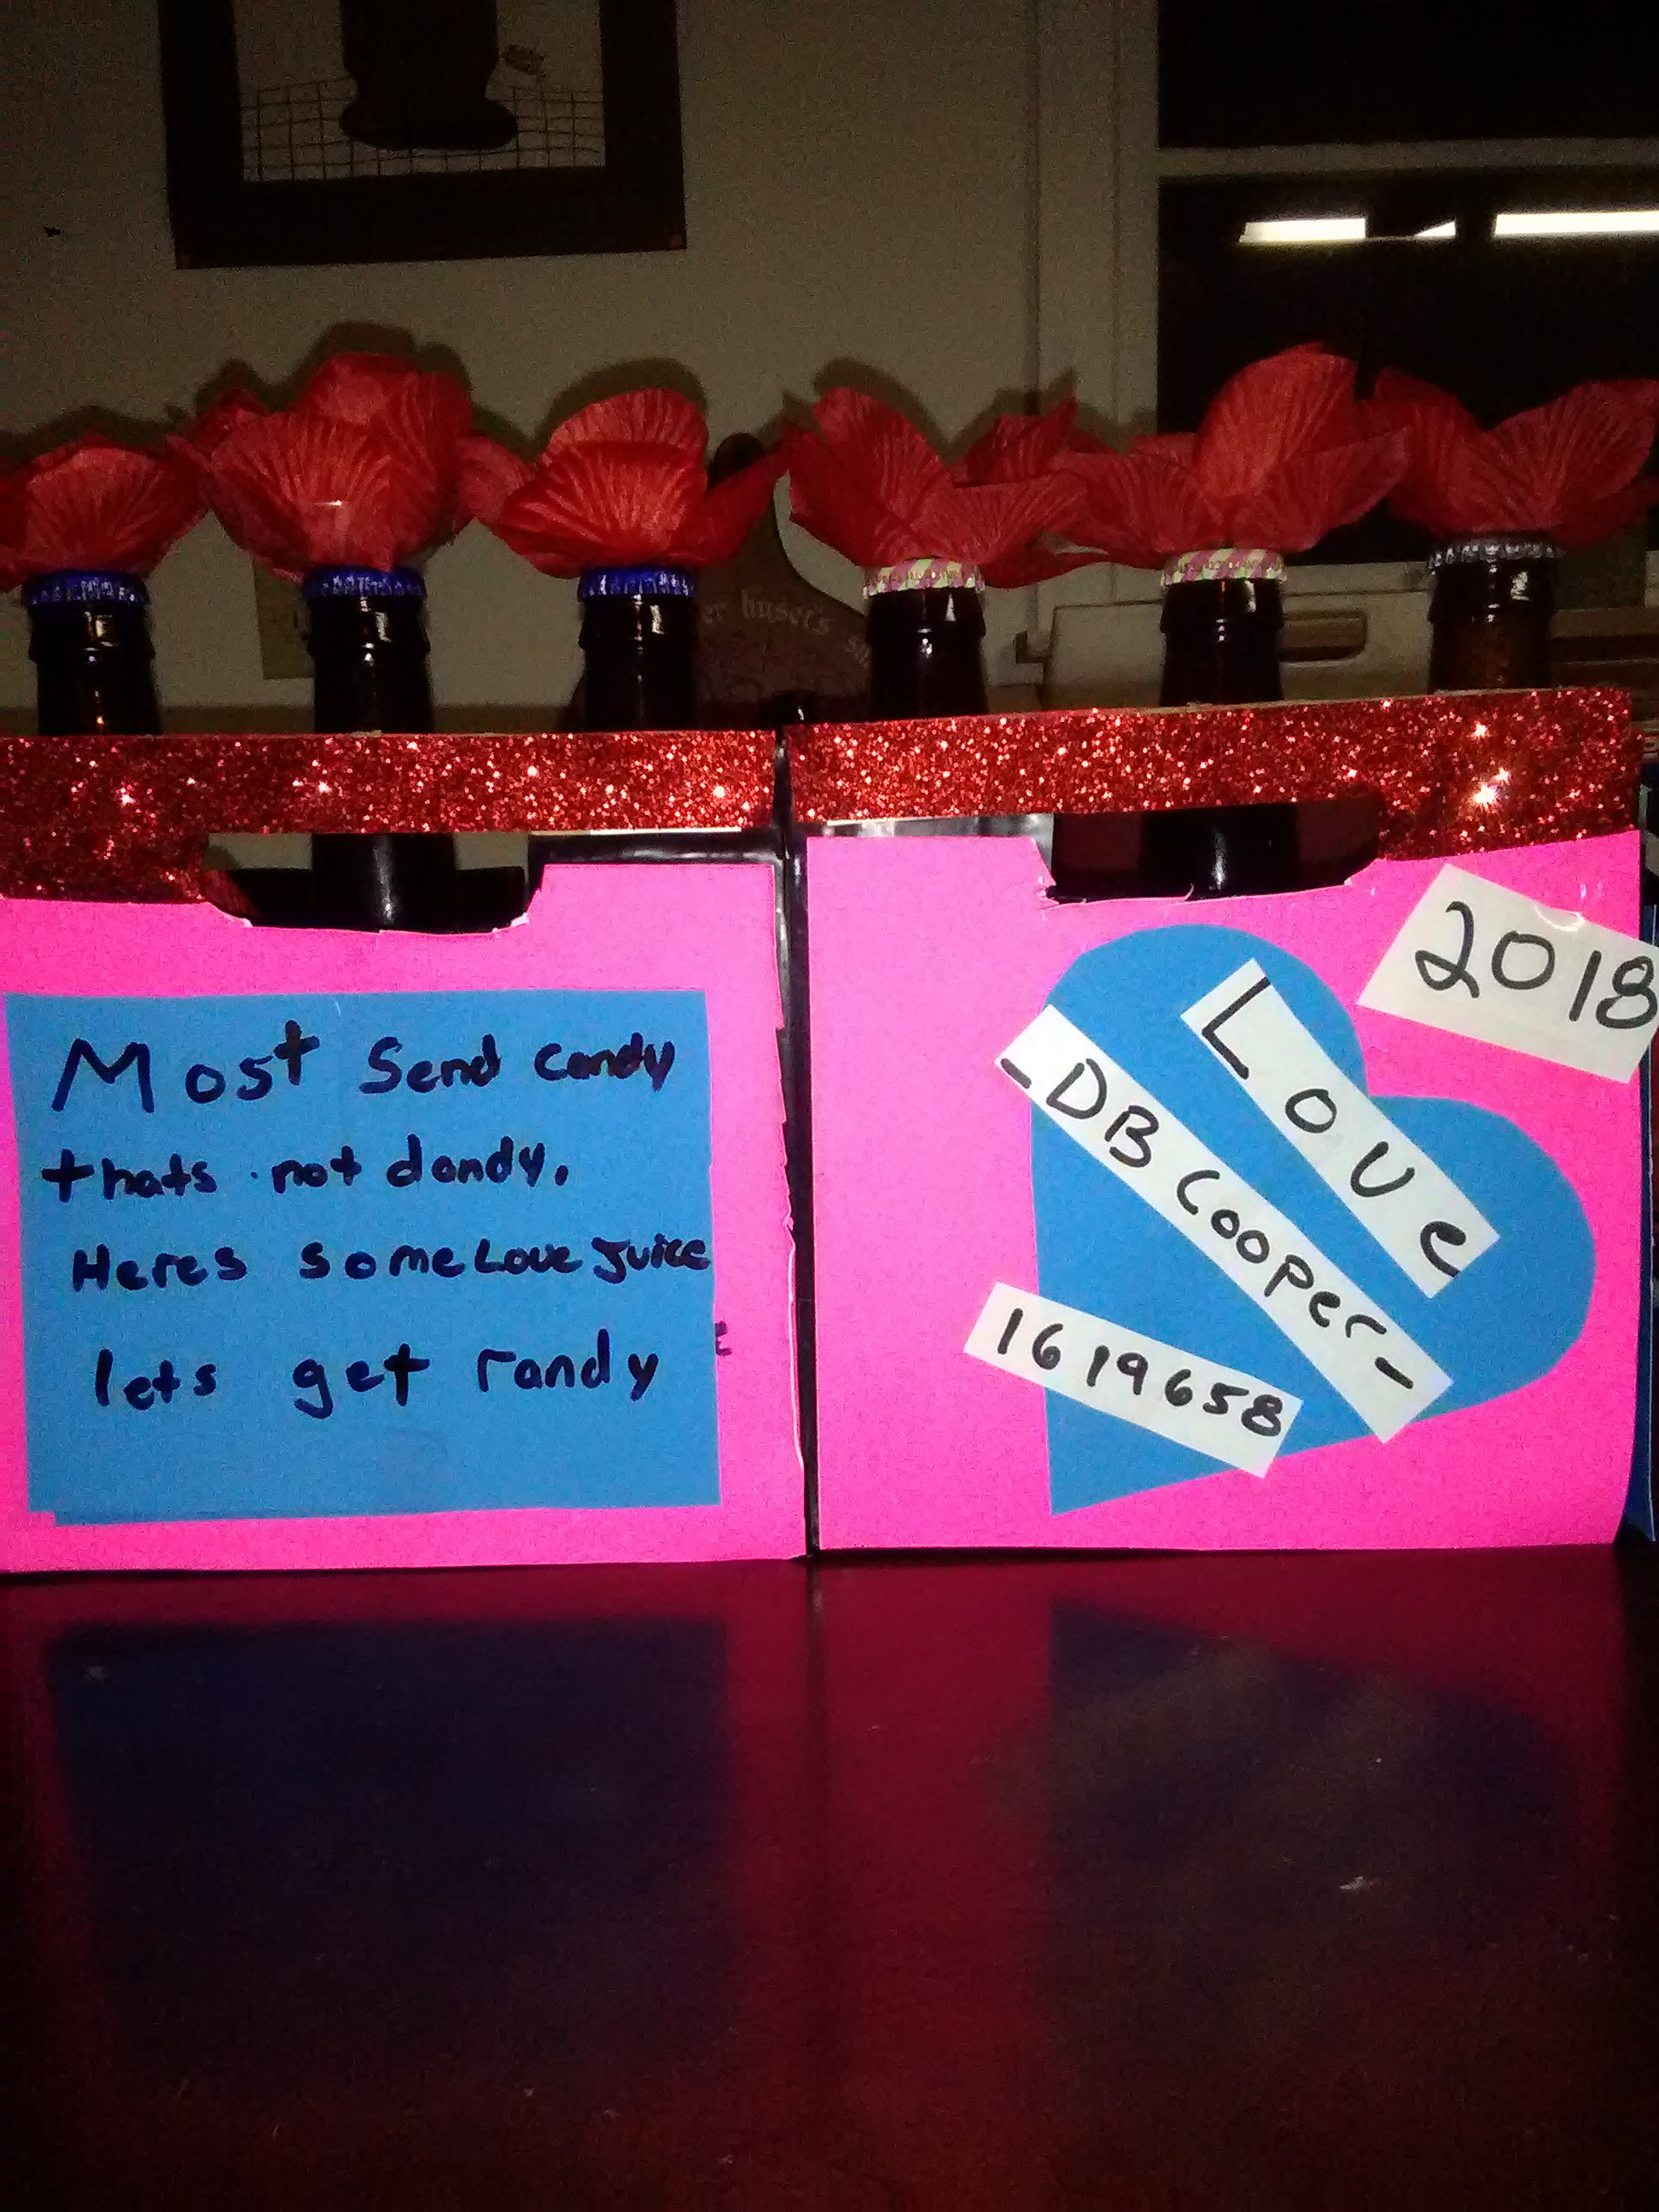 Most Send Candy
thats not dandy.
Heres some Love Juice
lets get randy
2018
Love
-DB Cooper-
1619658